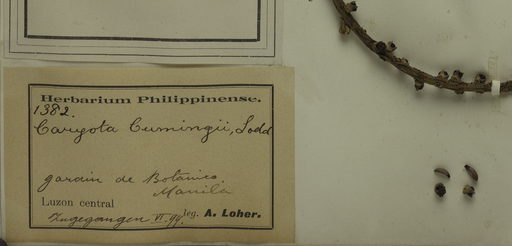 Herbarium Philippinense.
1382.
Caryota Cumingii, Lodd
gardin de Botanico
Manila
Luzon central
Zugegangen VI-99. leg. A. Loher.